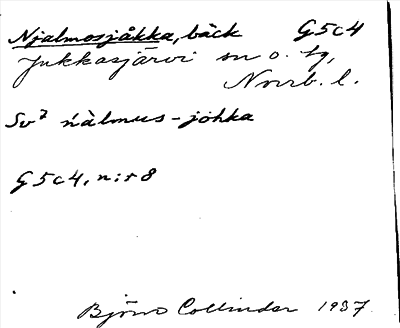 Njalmosjåkka, bäck G5c4
Jukkasjärvi sn o. tg,
Norrb. l.
Sv² ńàlmus-johka
G5c4, n:r 8
Björn Collinder 1937